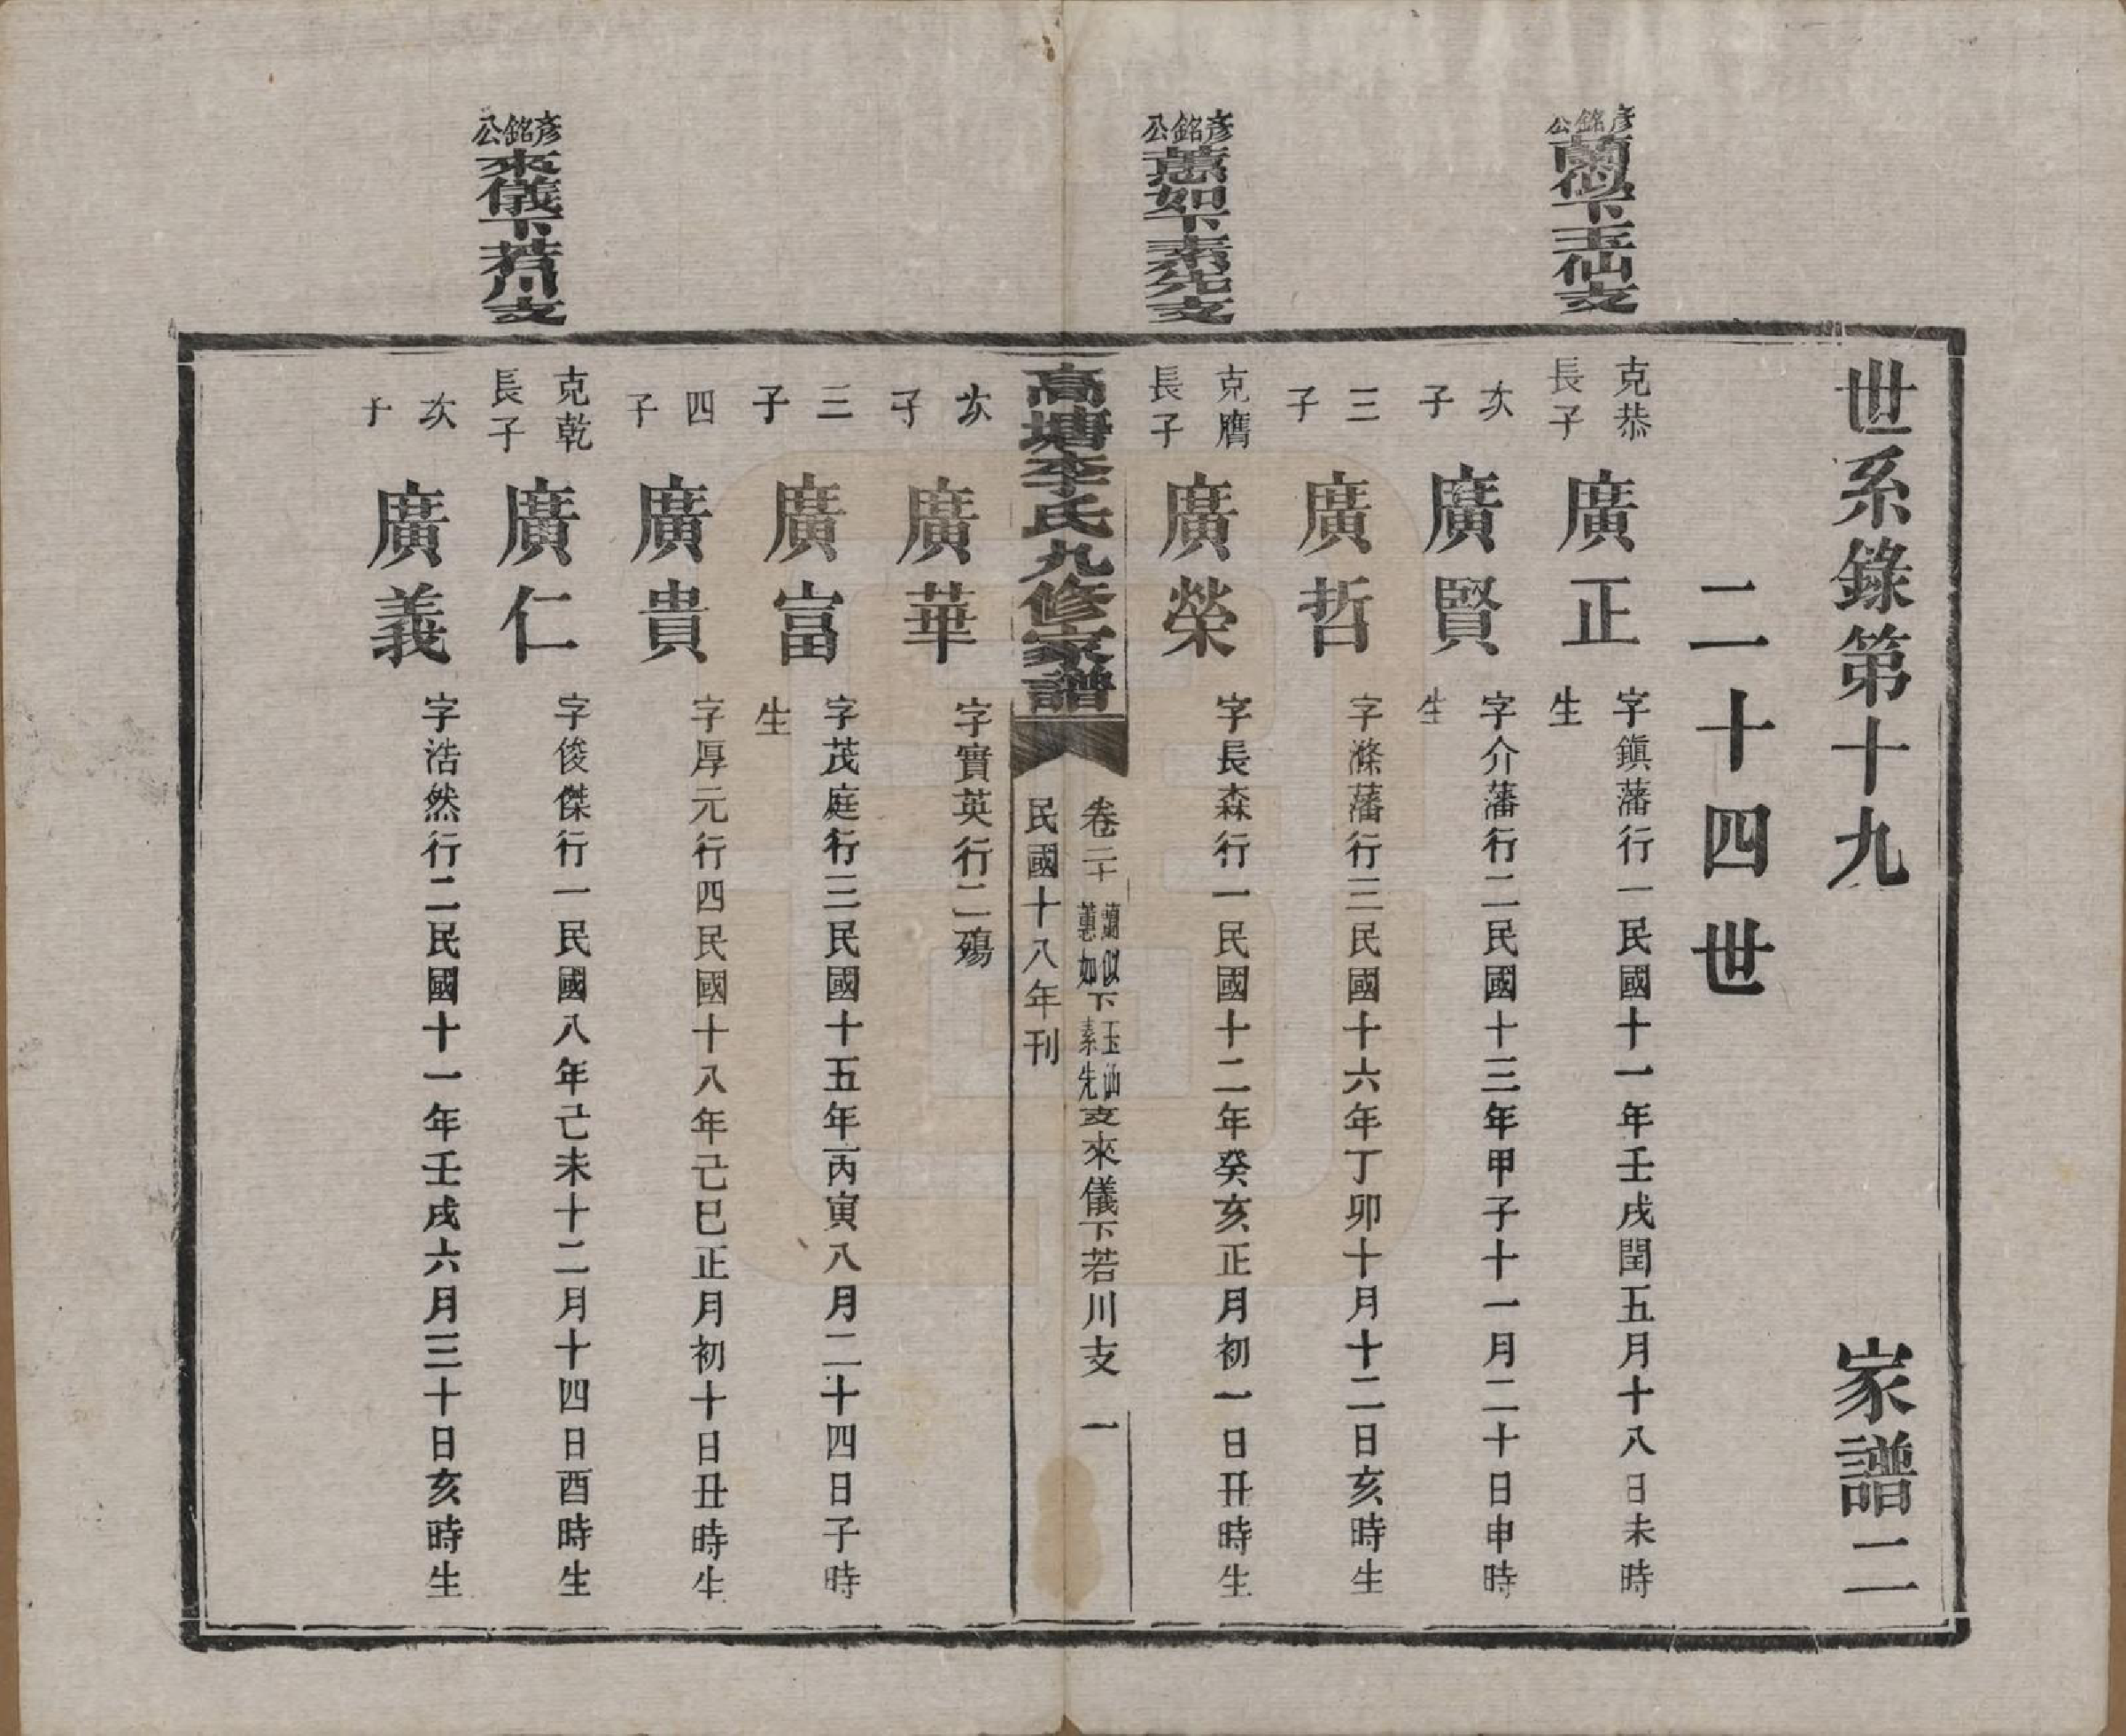 世系錄第十九 家譜二
二十四世
彥銘公蘭似下玉仙支
克恭長子 廣正 字鎮藩行一民國十一年壬戌閏五月十八日未時
生
次子 廣賢 字介藩行二民國十三年甲子十一月二十日申時
生
三子 廣哲 字滌藩行三民國十六年丁卯十月十二日亥時生
彥銘公蕙如下素先支
克膺長子 廣榮 字長森行一民國十二年癸亥正月初一日丑時生
高塘李氏九修家譜 卷二十 蘭似蕙如下玉仙素先支來儀下若川支 一
民國十八年刊
次子 廣華 字實英行二殤
三子 廣富 字茂庭行三民國十五年丙寅八月二十四日子時
生
四子 廣貴 字厚元行四民國十八年己巳正月初十日丑時生
彥銘公來儀下若川支
克乾長子 廣仁 字俊傑行一民國八年己未十二月十四日酉時生
次子 廣義 字浩然行二民國十一年壬戌六月三十日亥時生